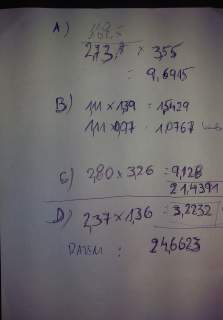 A)
273,5 × 3,55
= 9,6915
B) 1,11 × 1,39 = 1,5429
1,11 × 0,97 = 1,0767
C) 2,80 × 3,26 = 9,128
21,4391
D) 2,37 × 1,36 = 3,2232
24,6623